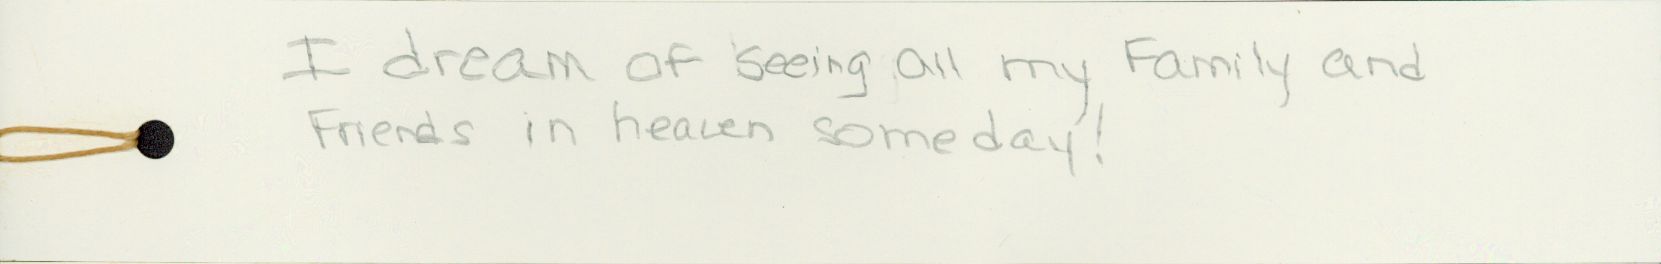 I dream of seeing all my Family and
Friends in heaven someday!